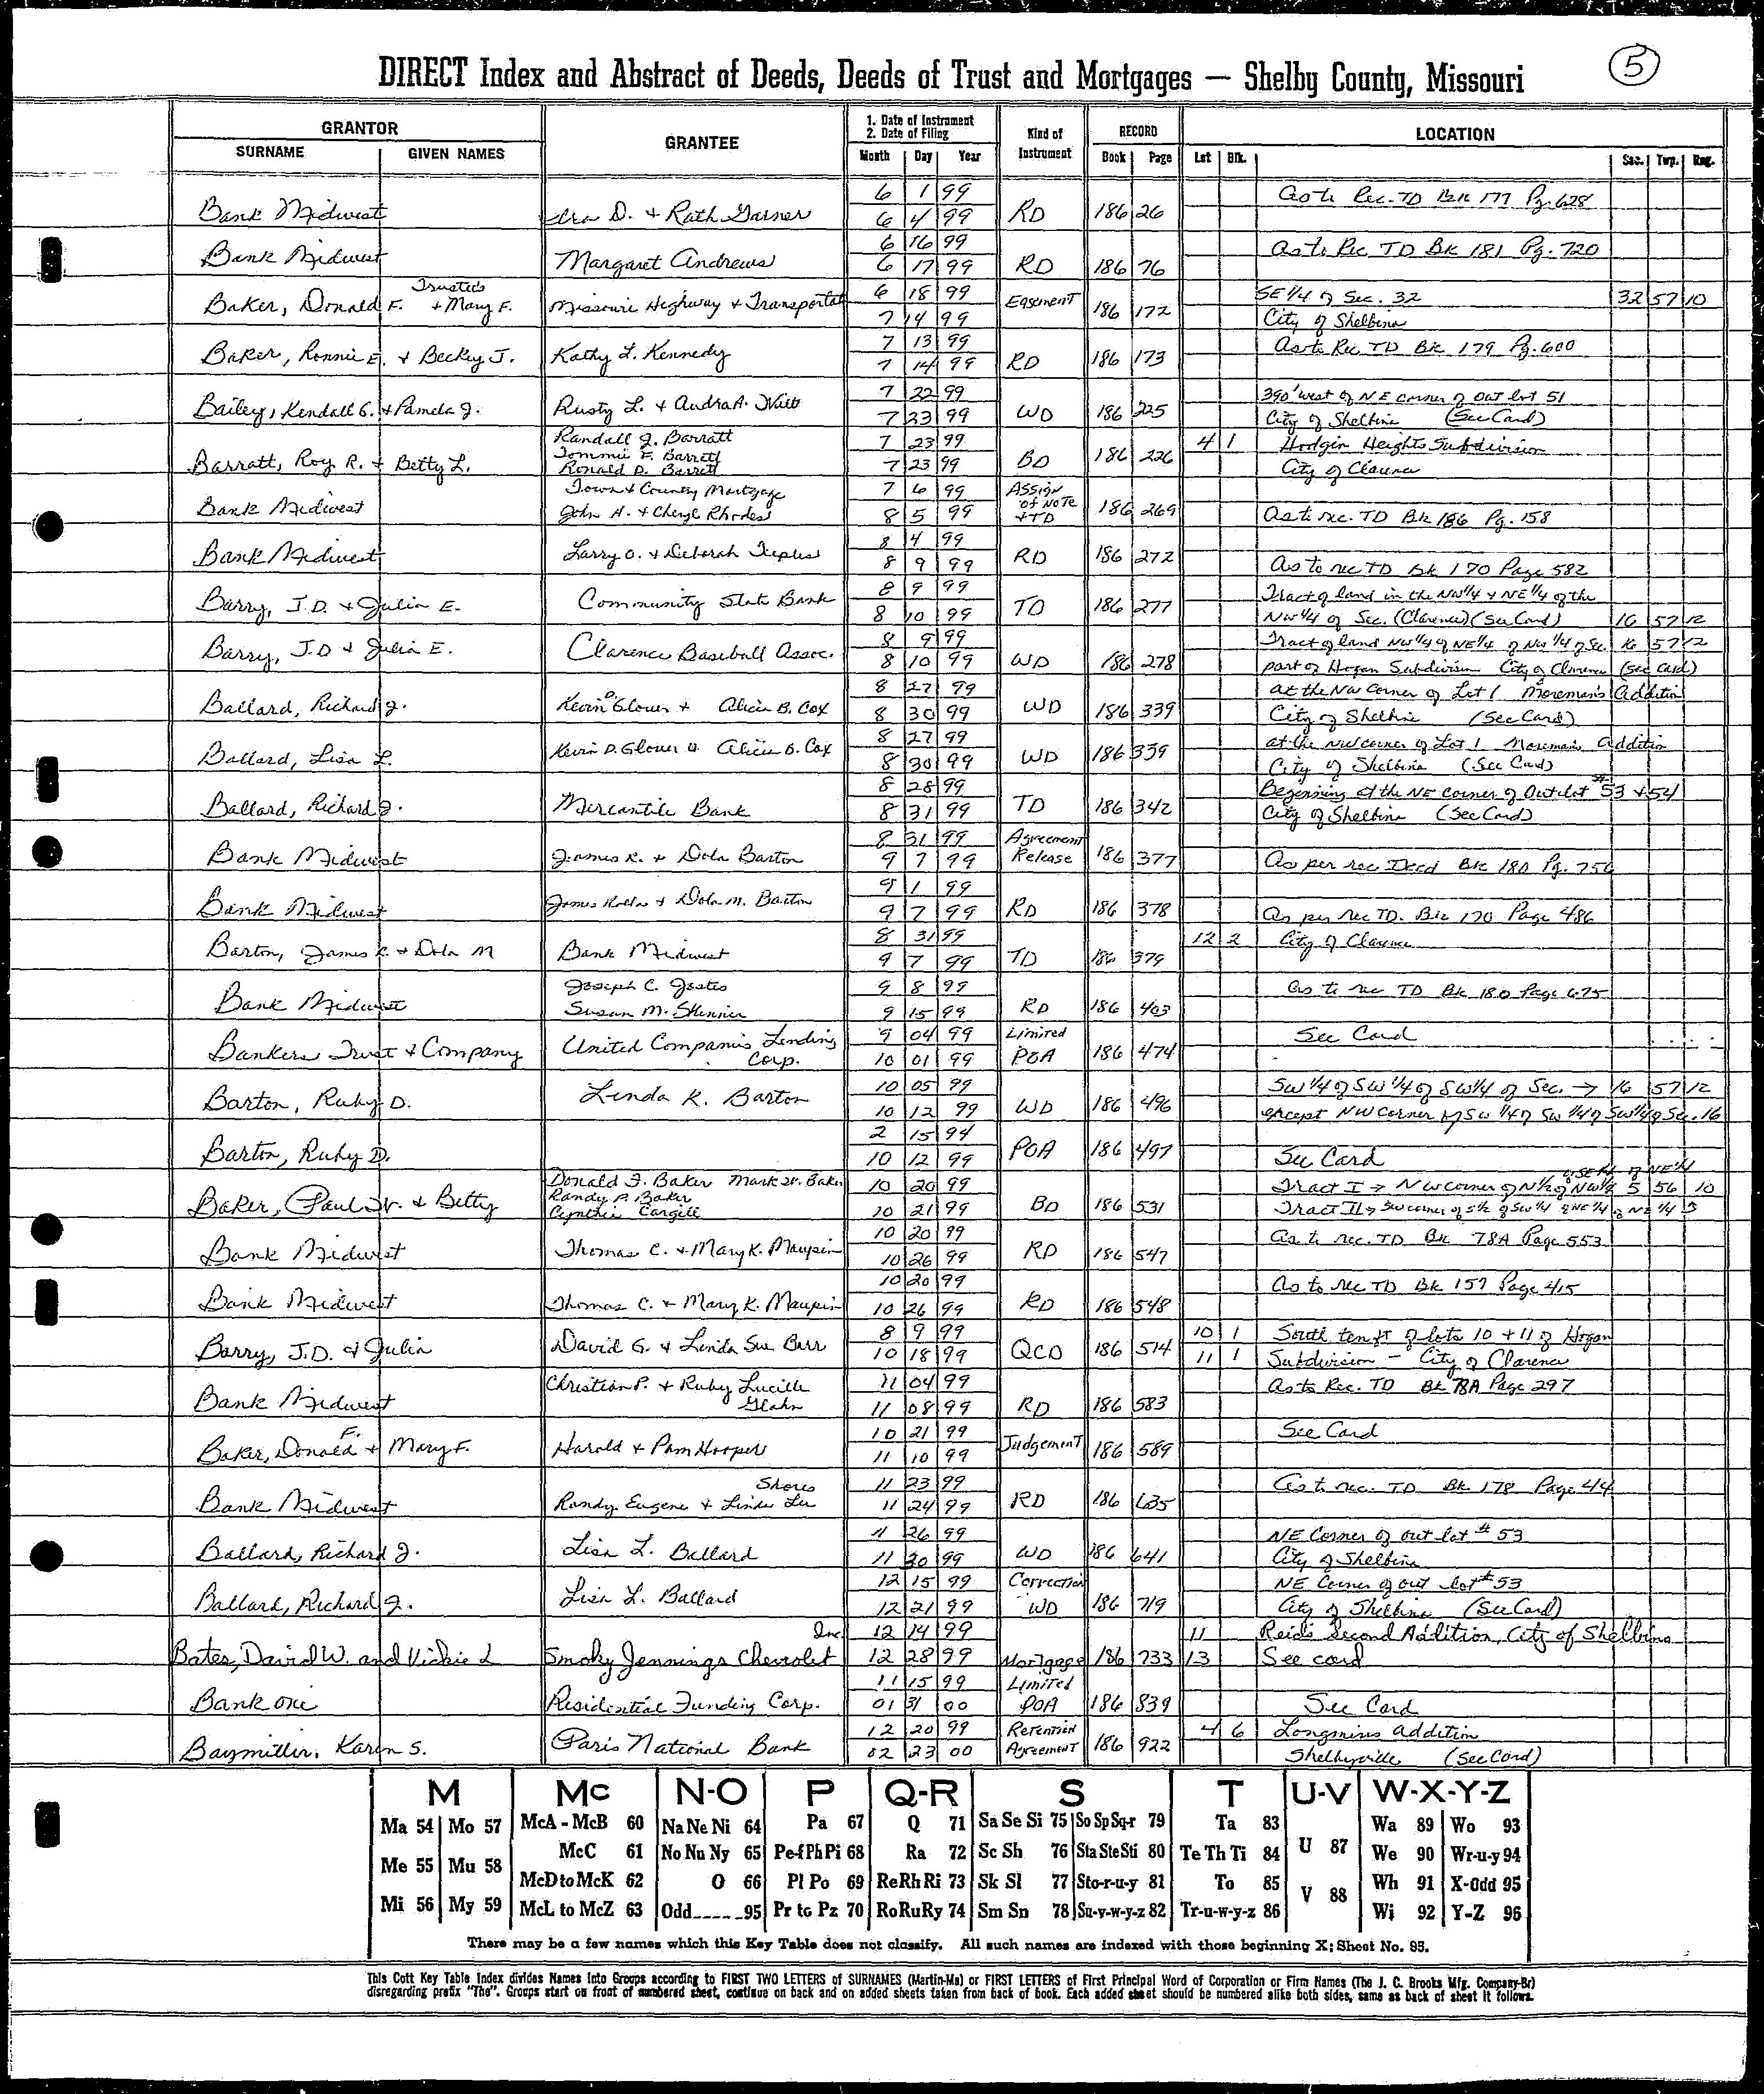 5
DIRECT Index and Abstract of Deeds, Deeds of Trust and Mortgages — Shelby County, Missouri
GRANTOR GRANTEE 1. Date of Instrument 2. Date of Filing Kind of Instrument RECORD LOCATION
SURNAME GIVEN NAMES Month Day Year Book Page Lot Blk. Sec. Twp. Rng.
6 1 99 As to Rec. TD Bk 177 Pg. 628
Bank Midwest D. + Ruth Garner 6 4 99 RD 186 26
6 16 99 As to Rec TD Bk 181 Pg. 720
Bank Midwest Margaret Andrews 6 17 99 RD 186 76
Trustees 6 18 99 SE 1/4 of Sec. 32 32 57 10
Baker, Donald F. + Mary F. Missouri Highway + Transportat 7 14 99 Easement 186 172 City of Shelbina
7 13 99 As to Rec TD Bk 179 Pg. 600
Baker, Ronnie E. + Becky J. Kathy L. Kennedy 7 14 99 RD 186 173
7 22 99 390' west of NE corner of out lot 51
Bailey, Kendall G. + Pamela J. Rusty L. + Audra A. 7 23 99 WD 186 225 City of Shelbina (See Card)
Randall J. Barratt 7 23 99 4 1 Hodgin Heights Subdivision
Tommie F. Barrett
Barratt, Roy R. + Betty L. Ronald D. Barrett 7 23 99 BD 186 226 City of Clarence
Town + Country Mortgage 7 6 99 Assign of Note + TD
Bank Midwest John A. + Cheryl Rhodes 8 5 99 186 269 As to rec. TD Bk 186 Pg. 158
8 4 99
Bank Midwest Larry O. + Deborah 8 9 99 RD 186 272 As to rec TD Bk 170 Page 582
8 9 99 Tract of land in the NW 1/4 + NE 1/4 of the
Barry, J.D. + Julia E. Community State Bank 8 10 99 TD 186 277 NW 1/4 of Sec. (Clarence) (See Card) 16 57 12
8 9 99 Tract of land NW 1/4 of NE 1/4 of NW 1/4 of Sec. 16 57 12
Barry, J.D + Julia E. Clarence Baseball Assoc. 8 10 99 WD 186 278 part of Hogan Subdivision City of Clarence (See Card)
8 27 99 at the NW corner of Lot 1 Moreman's Addition
Ballard, Richard J. Kevin D. Glover + Alicia B. Cox 8 30 99 WD 186 339 City of Shelbina (See Card)
8 27 99 at the NW corner of Lot 1 Moreman's Addition
Ballard, Lisa L. Kevin D. Glover + Alicia B. Cox 8 30 99 WD 186 339 City of Shelbina (See Card)
8 28 99 Beginning at the NE corner of Out lot # 53 + 54
Ballard, Richard J. Mercantile Bank 8 31 99 TD 186 342 City of Shelbina (See Card)
8 31 99 Agreement
Bank Midwest James R. + Dola Barton 9 7 99 Release 186 377 As per rec Deed Bk 180 Pg.
9 1 99
Bank Midwest James + Dola M. Barton 9 7 99 RD 186 378 As per rec TD. Bk 170 Page 486
8 31 99 12 2 City of Clarence
Barton, James R. + Dola M Bank Midwest 9 7 99 TD 186 379
Joseph C. 9 8 99 As to rec TD Bk 180 Page 675
Bank Midwest Susan M. Skinner 9 15 99 RD 186 403
9 04 99 Limited See Card
Bankers Trust + Company United Companies Lending Corp. 10 01 99 POA 186 474
10 05 99 SW 1/4 of SW 1/4 of SW 1/4 of Sec. → 16 57 12
Barton, Ruby D. Linda K. Barton 10 12 99 WD 186 496 except NW Corner of SW 1/4 of SW 1/4 of SW 1/4 of Sec. 16
2 15 94
Barton, Ruby D. 10 12 99 POA 186 497 See Card
Donald F. Baker Mark W. Baker 10 20 99 Tract I → NW corner of N 1/2 of NW 1/4 of SE 1/4 of NE 1/4 5 56 10
Randy P. Baker
Baker, Paul W. + Betty Cynthia Cargill 10 21 99 BD 186 531 Tract II → SW corner of S 1/2 of SW 1/4 of NE 1/4 of NE 1/4 5
10 20 99 As to rec. TD Bk 78A Page 553
Bank Midwest Thomas C. + Mary K. Maupin 10 26 99 RD 186 547
10 20 99 As to rec TD Bk 157 Page 415
Bank Midwest Thomas C. + Mary K. Maupin 10 26 99 RD 186 548
8 9 99 10 1 South ten ft of lots 10 + 11 of Hogan
Barry, J.D. + Julia David G. + Linda Sue Burr 10 18 99 QCD 186 514 11 1 Subdivision - City of Clarence
Christian P. + Ruby Lucille 11 04 99 As to Rec. TD Bk 78A Page 297
Bank Midwest Glahn 11 08 99 RD 186 583
10 21 99 See Card
Baker, Donald F. + Mary F. Harold + Pam Hooper 11 10 99 Judgement 186 589
Shores 11 23 99 As to rec. TD Bk 178 Page 44
Bank Midwest Randy Eugene + Linda Lee 11 24 99 RD 186 635
11 26 99 NE Corner of out lot # 53
Ballard, Richard J. Lisa L. Ballard 11 30 99 WD 186 641 City of Shelbina
12 15 99 Correction NE Corner of out lot # 53
Ballard, Richard J. Lisa L. Ballard 12 21 99 WD 186 719 City of Shelbina (See Card)
Inc 12 14 99 11 Reid's Second Addition, City of Shelbina
Bates, David W. and Vickie L Smoky Jennings Chevrolet 12 28 99 Mortgage 186 733 13 See card
11 15 99 Limited
Bank One Residential Funding Corp. 01 31 00 POA 186 839 See Card
12 20 99 Retention 4 6 Longmires Addition
Baymiller, Karen S. Paris National Bank 02 23 00 Agreement 186 922 Shelbyville (See Card)
M Mc N-O P Q-R S T U-V W-X-Y-Z
Ma 54 Mo 57 McA - McB 60 Na Ne Ni 64 Pa 67 Q 71 Sa Se Si 75 So Sp Sq-r 79 Ta 83 Wa 89 Wo 93
Me 55 Mu 58 McC 61 No Nu Ny 65 Pe-f Ph Pi 68 Ra 72 Sc Sh 76 Sta Ste Sti 80 Te Th Ti 84 U 87 We 90 Wr-u-y 94
McD to McK 62 O 66 Pl Po 69 Re Rh Ri 73 Sk Sl 77 Sto-r-u-y 81 To 85 V 88 Wh 91 X-Odd 95
Mi 56 My 59 McL to McZ 63 Odd 95 Pr to Pz 70 Ro Ru Ry 74 Sm Sn 78 Su-v-w-y-z 82 Tr-u-w-y-z 86 Wi 92 Y-Z 96
There may be a few names which this Key Table does not classify. All such names are indexed with those beginning X; Sheet No. 95.
This Cott Key Table Index divides Names into Groups according to FIRST TWO LETTERS of SURNAMES (Martin-Ma) or FIRST LETTERS of First Principal Word of Corporation or Firm Names (The J. C. Brooks Mfg. Company-Br)
disregarding prefix "The". Groups start on front of numbered sheet, continue on back and on added sheets taken from back of book. Each added sheet should be numbered alike both sides, same as back of sheet it follows.